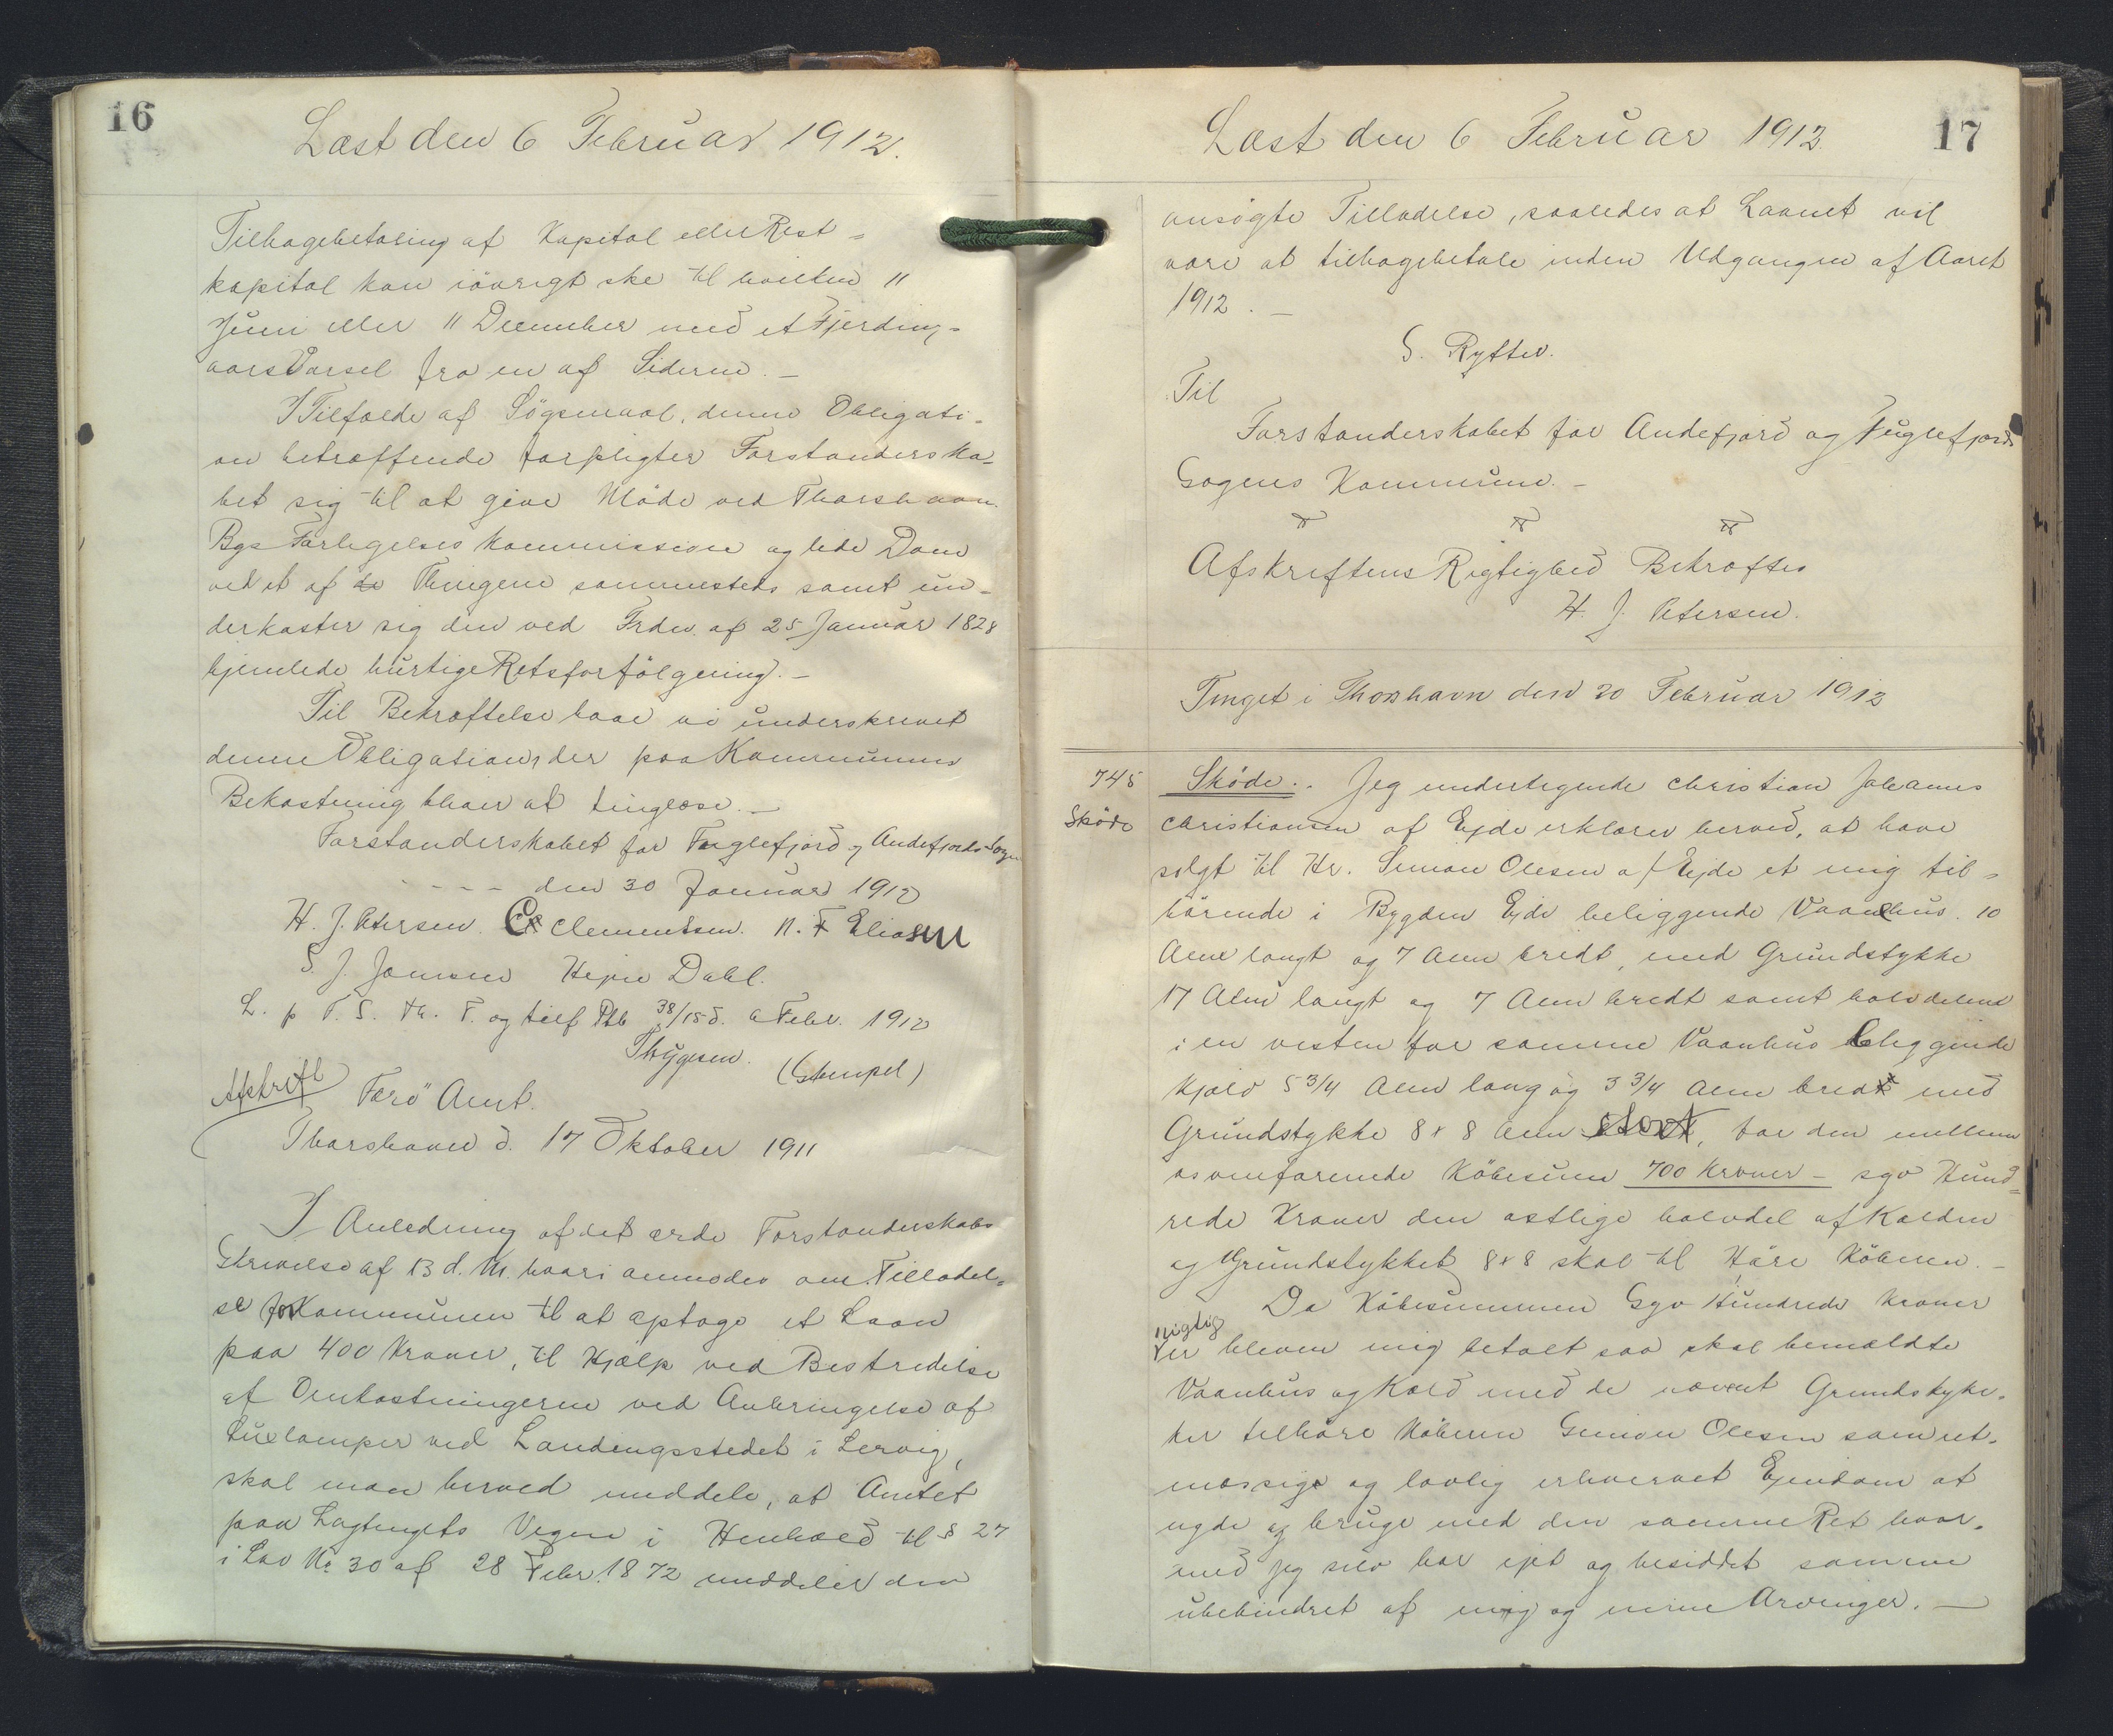 16
Læst den 6 Februar 1912.
Tilbagebetaling af Kapital eller Rest=
kapital kan iövrigt ske til hvilken 11
Juni eller 11 December med et Fjerding=
aars Varsel fra en af Siderne. —
I Tilfælde af Sögsmaal, denne Obligati=
on betræffende forpligter Forstanderska=
bet sig til at give Möde ved Thorshavn
Bys Forligelses Kommission og lide Dom
ved et af de Thingene sammesteds samt un=
derkaster sig den ved Frdn. af 25 Januar 1828
hjemlede hurtige Retsforfölgning. —
Til Bekræftelse have vi underskrevet
denne Obligation, der paa Kommunens
Bekostning bliver at tinglæse. —
Forstanderskabet for Fuglefjord og Andefjords Sogn
- - - - den 30 Januar 1912
H. J. Petersen. C Clementsen. N. F Eliasen
S. J. Joensen Hejne Dahl.
L. p T. S. Th. F. og tilf Ptb 38/15 d. 6 Febr. 1912
Thygesen.
(Stempel)
Afskrift
Færö Amt.
Thorshavn d. 17 Oktober 1911
I Anledning af det ærede Forstanderskabs
Skrivelse af 13 d. M. hvori anmodes om Tilladel=
se for Kommunen til at optage et Laan
paa 400 Kroner, til Hjælp ved Bestridelse
af Omkostningerne ved Anbringelse af
Luxlamper ved Landingsstedet i Lervig,
skal man herved meddele, at Amtet
paa Lagtingets Vegne i Henhold til § 27
i Lov No 30 af 28 Febr. 1872 meddeler den
17
Læst den 6 Februar 1912.
ansøgte Tilladelse, saaledes at Laanet vil
være at tilbagebetale inden Udgangen af Aaret
1912. —
S. Rytter.
Til
Forstanderskabet for Andefjord og Fuglefjords
Sogens Kommune. —
Afskriftens Rigtighed Bekræftes
H. J. Petersen.
Tinget i Thorshavn den 20 Februar 1912
745
Sköde
Sköde. . Jeg undertegende Christian Johannes
Christiansen af Ejde erklærer herved, at have
solgt til Hr. Simon Olesen af Ejde et mig til=
hörende i Bygden Ejde beliggende Vaanhus. 10
Alen langt og 7 Alen bredt, med Grundstykke
17 Alen langt og 7 Alen bredt samt halvdelene
i en vesten for samme Vaanhus beliggende
Kjæld 5 3/4 Alen lang og 3 3/4 Alen bredt med
Grundstykke 8 x 8 Alen stort, for den mellem
os omforenede Köbesum 700 Kroner — syv Hund=
rede Kroner den østlige halvdel af Kælden
og Grundstykket 8x8 skal til Höre Köberen. —
Da Köbesummen Syv Hundrede Kroner
rigtig
er bleven mig betalt saa skal bemældte
Vaanhus og Kæld med de nævnt Grundstyk=
ker tilhöre Köberen Simon Olesen som ret=
mæssige og lovlig erhvervet Ejendom at
nyde og bruge med den samme Ret hvor=
med jeg selv har ejet og besiddet samme
ubehindret af mig og mine Arvinger. —